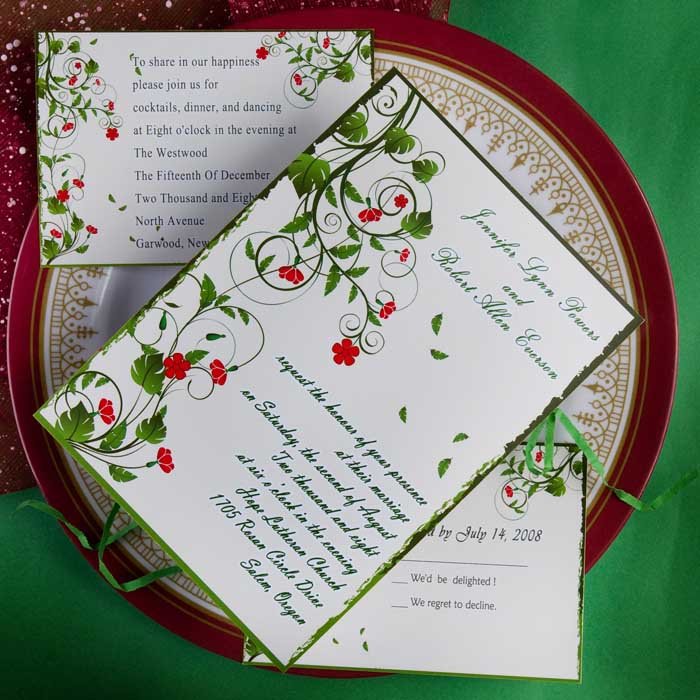 To share in our happiness
please join us for
cocktails, dinner, and dancing
at Eight o'clock in the evening at
The Westwood
The Fifteenth Of December
Two Thousand and
North Avenue
Garwood, New
Jennifer Lynn Powers
and
Robert Allen Everson
request the honour of your presence
at their marriage
on Saturday, the second of August
Two thousand and eight
at six o'clock in the evening
Hope Lutheran Church
1705 Rosan Circle Drive
Salem, Oregon
by July 14, 2008
___ We'd be delighted !
___ We regret to decline.